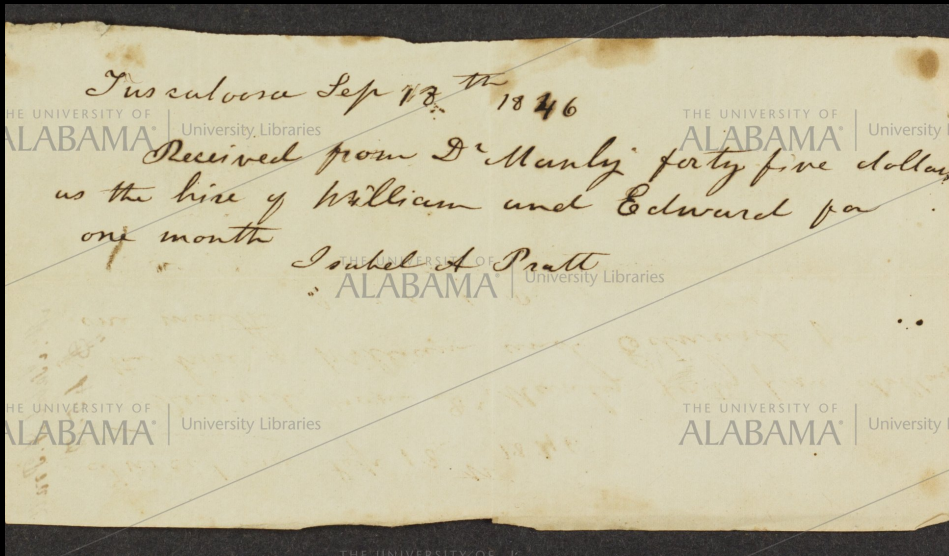 Tuscaloosa Sep 18th 1846
Received from Dr Manly forty five dollars
as the hire of William and Edward for
one month
Isabel A Pratt
THE UNIVERSITY OF
ALABAMA University Libraries
THE UNIVERSITY OF
ALABAMA University Libraries
THE UNIVERSITY OF
ALABAMA University Libraries
THE UNIVERSITY OF
ALABAMA University Libraries
THE UNIVERSITY OF
ALABAMA University
THE UNIVERSITY OF